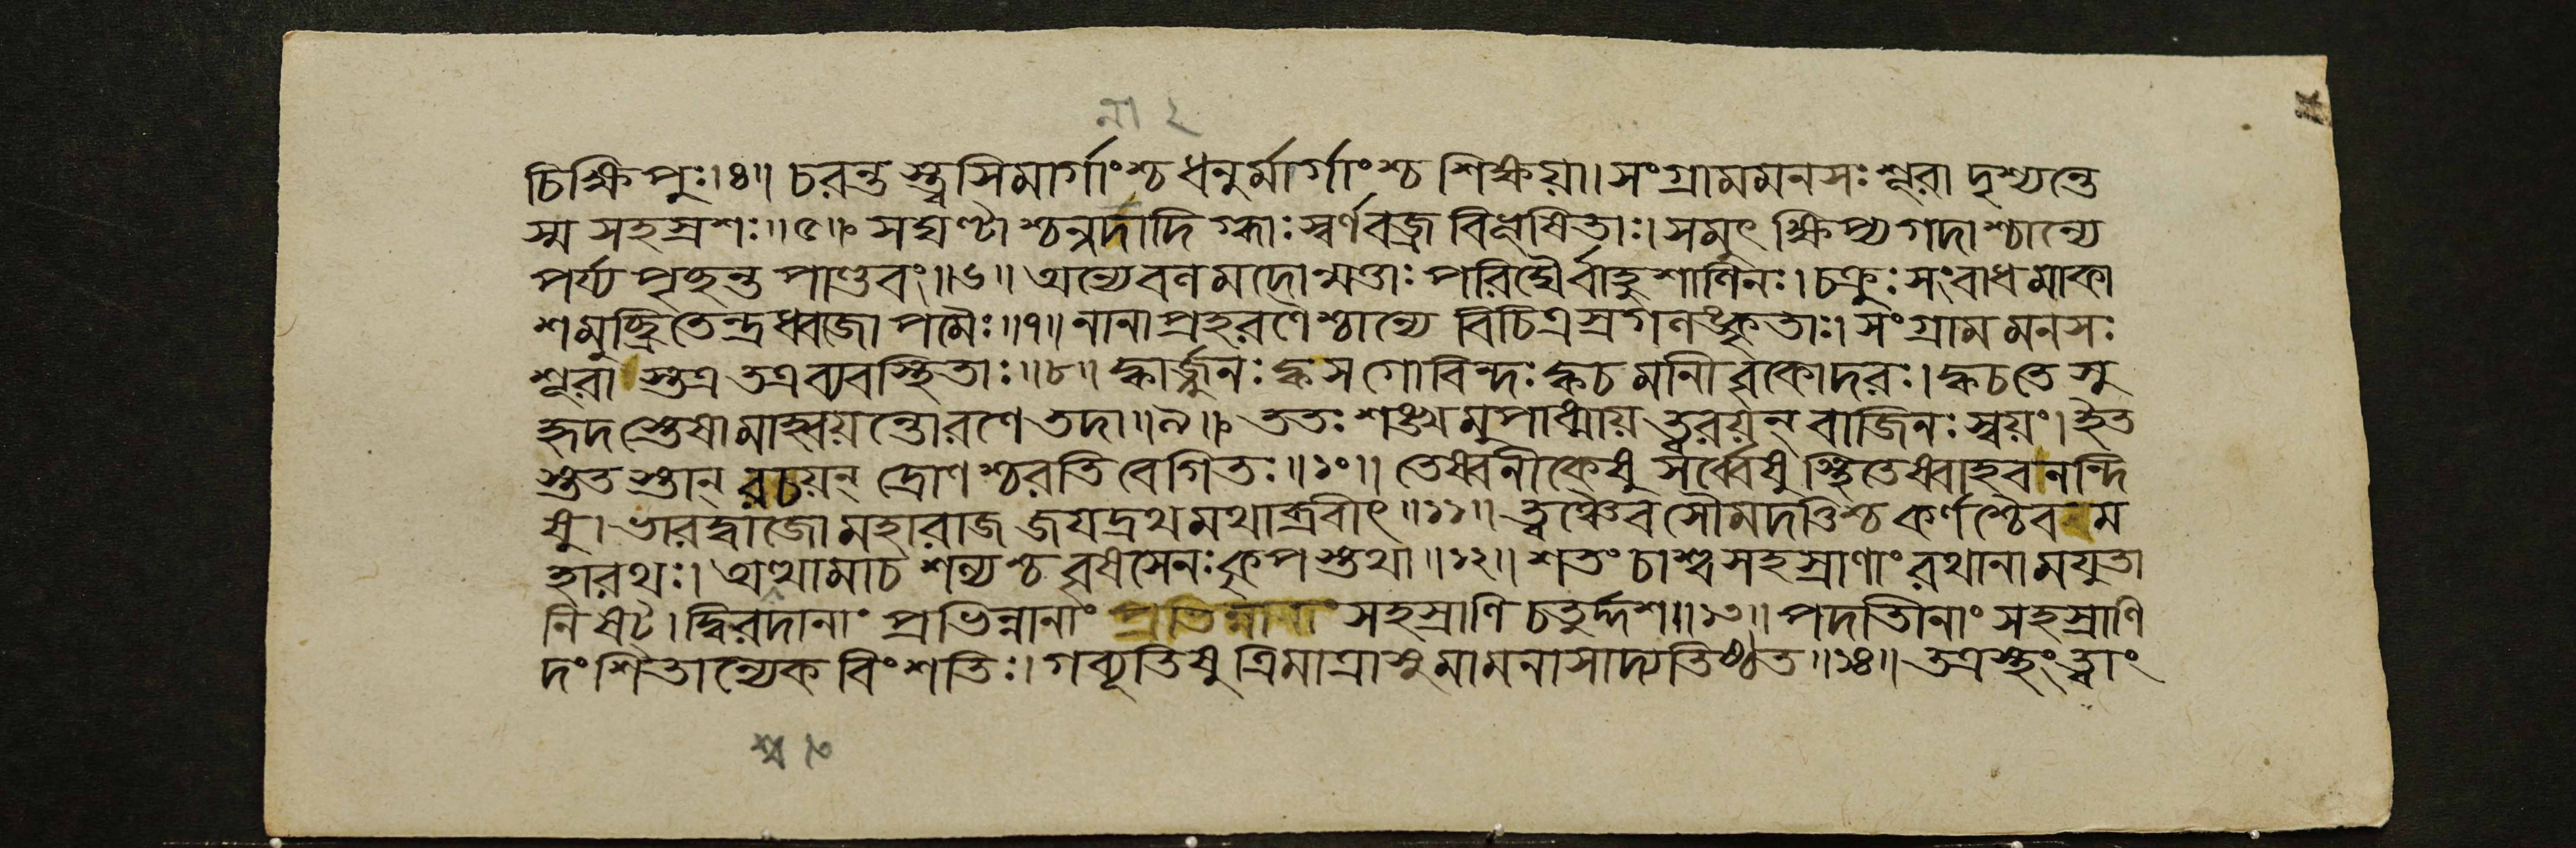 না ২
চিক্ষিপুঃ॥৪॥ চরন্তস্ত্বসিমার্গাংশ্চ ধনুর্মার্গাংশ্চ শিক্ষয়া। সংগ্রামমনসঃ শূরা দৃশ্যন্তে
স্ম সহস্রশঃ॥৫॥ সঘণ্টাশ্চন্দনাদিগ্ধাঃ স্বর্ণবজ্রবিভূষিতাঃ। সমুৎক্ষিপ্য গদাশ্চান্যে
পর্য্যপৃচ্ছন্ত পাণ্ডবং॥৬॥ অন্যে বলমদোন্মত্তাঃ পরিঘৈর্বাহুশালিনঃ। চক্রুঃ সংবাধমাকা
শমুচ্ছ্রিতেন্দ্রধ্বজোপমৈঃ॥৭॥ নানাপ্রহরণৈশ্চান্যে বিচিত্রস্রগলঙ্কৃতাঃ। সংগ্রামমনসঃ
শূরাস্তত্র তত্র ব্যবস্থিতাঃ॥৮॥ ক্বার্জ্জুনঃ ক্ব স গোবিন্দঃ ক্ব চ মানী বৃকোদরঃ। ক্ব চ তে সু
হৃদস্তেষামাহ্বয়ন্তো রণে তদা॥৯॥ ততঃ শঙ্খমুপাধ্মায় ত্বরয়ন্ বাজিনঃ স্বয়ং। ইত
স্ততস্তান্ রচয়ন্ দ্রোণশ্চরতি বেগিতঃ॥১০॥ তেষ্বনীকেষু সর্ব্বেষু স্থিতেষ্বাহবনন্দি
ষু। ভারদ্বাজো মহারাজ জয়দ্রথমথাব্রবীৎ॥১১॥ ত্বঞ্চৈব সৌমদত্তিশ্চ কর্ণশ্চৈব ম
হারথঃ। অশ্বত্থামা চ শল্যশ্চ বৃষসেনঃ কৃপস্তথা॥১২॥ শতং চাশ্বসহস্রাণাং রথানামযুতা
নি ষট্। দ্বিরদানাং প্রভিন্নানাং সহস্রাণি চতুর্দ্দশ॥১৩॥ পদাতীনাং সহস্রাণি
দংশিতান্যেকবিংশতিঃ। গব্যূতিষু ত্রিমাত্রাসু মামনাসাদ্য তিষ্ঠত॥১৪॥ তত্রস্থং ত্বাং